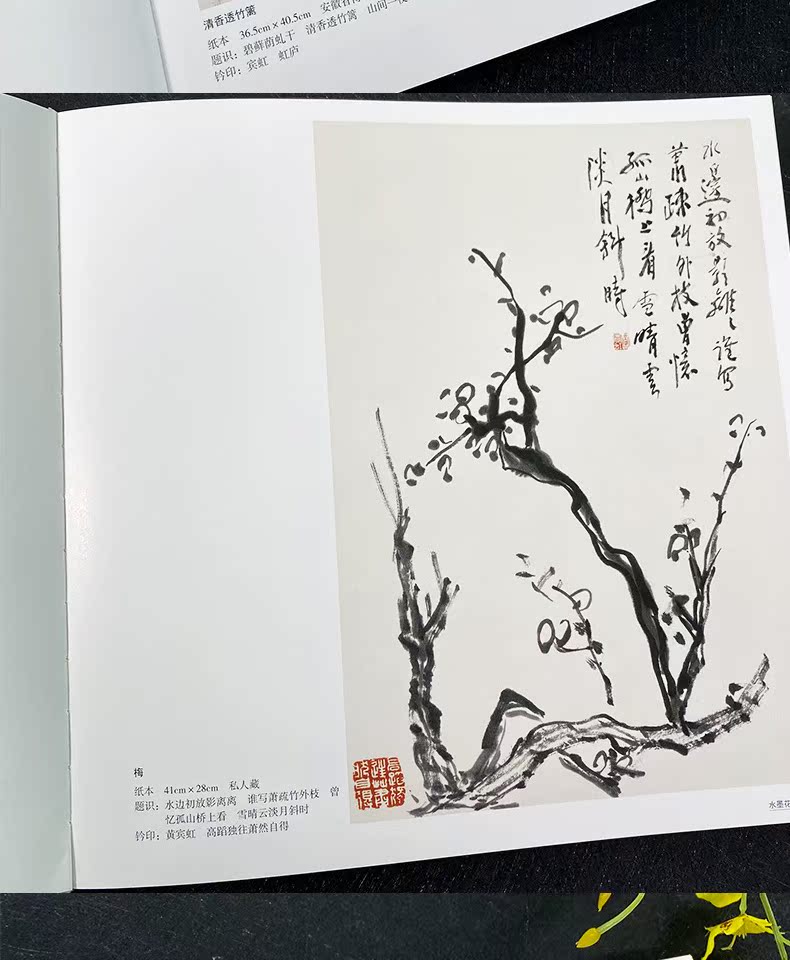 清香透竹篱
纸本 36.5cm×40.5cm 安徽省博
题识：碧藓荫虬干 清香透竹篱 山间一夜
钤印：宾虹 虹庐
水邊初放影離〻誰寫
蕭疎竹外枝曾憶
孤山橋上看雪晴雲
淡月斜時
梅
纸本 41cm×28cm 私人藏
题识：水边初放影离离 谁写萧疏竹外枝 曾
忆孤山桥上看 雪晴云淡月斜时
钤印：黄宾虹 高蹈独往萧然自得
水墨花